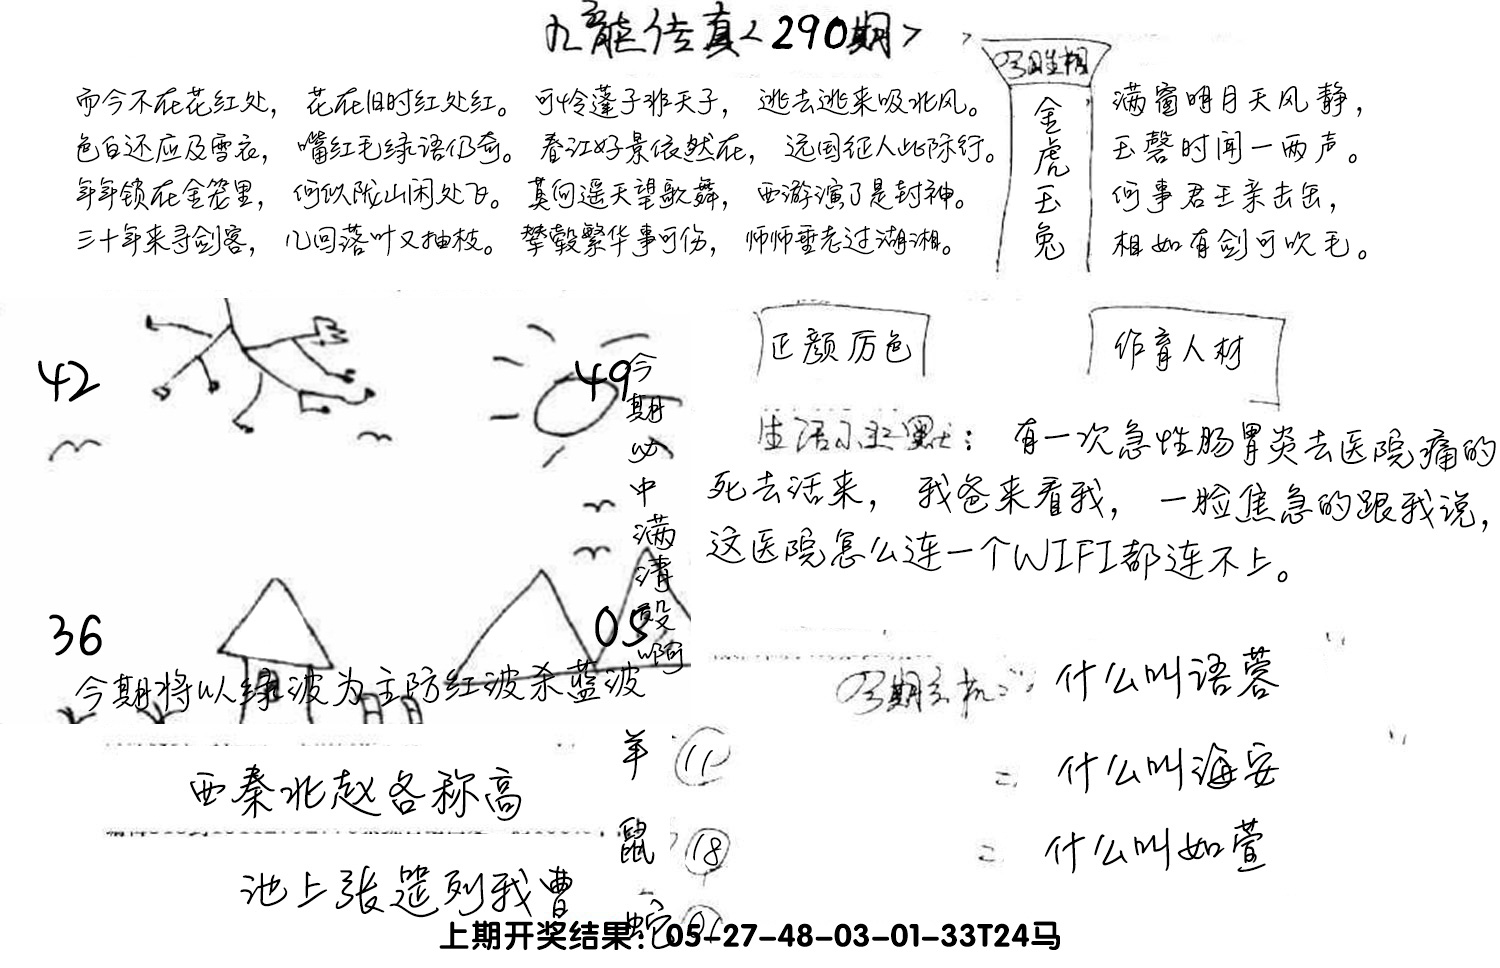 九龙传真<290期>
而今不在花红处， 花在旧时红处红。 可怜蓬子非天子， 逃去逃来吸北风。
色白还应及雪衣， 嘴红毛绿语仍奇。 春江好景依然在， 远国征人此际行。
年年锁在金笼里， 何似陇山闲处飞。 莫向遥天望歌舞， 西游演了是封神。
三十年来寻剑客， 几回落叶又抽枝。 攀毂繁华事可伤， 师师垂老过湖湘。
今日生相
金虎玉兔
满窗明月天风静，
玉磬时闻一两声。
何事君王亲击缶，
相如有剑可吹毛。
42
49
36
05
今期必中满清毁啊
今期将以绿波为主防红波杀蓝波
正颜厉色
作育人材
生活小幽默： 有一次急性肠胃炎去医院痛的
死去活来， 我爸来看我， 一脸焦急的跟我说，
这医院怎么连一个WIFI都连不上。
今期玄机：
什么叫语蓉
= 什么叫海安
= 什么叫如萱
西秦北赵各称高
池上张筵列我曹
羊 11
鼠 18
蛇
上期开奖结果：05-27-48-03-01-33T24马